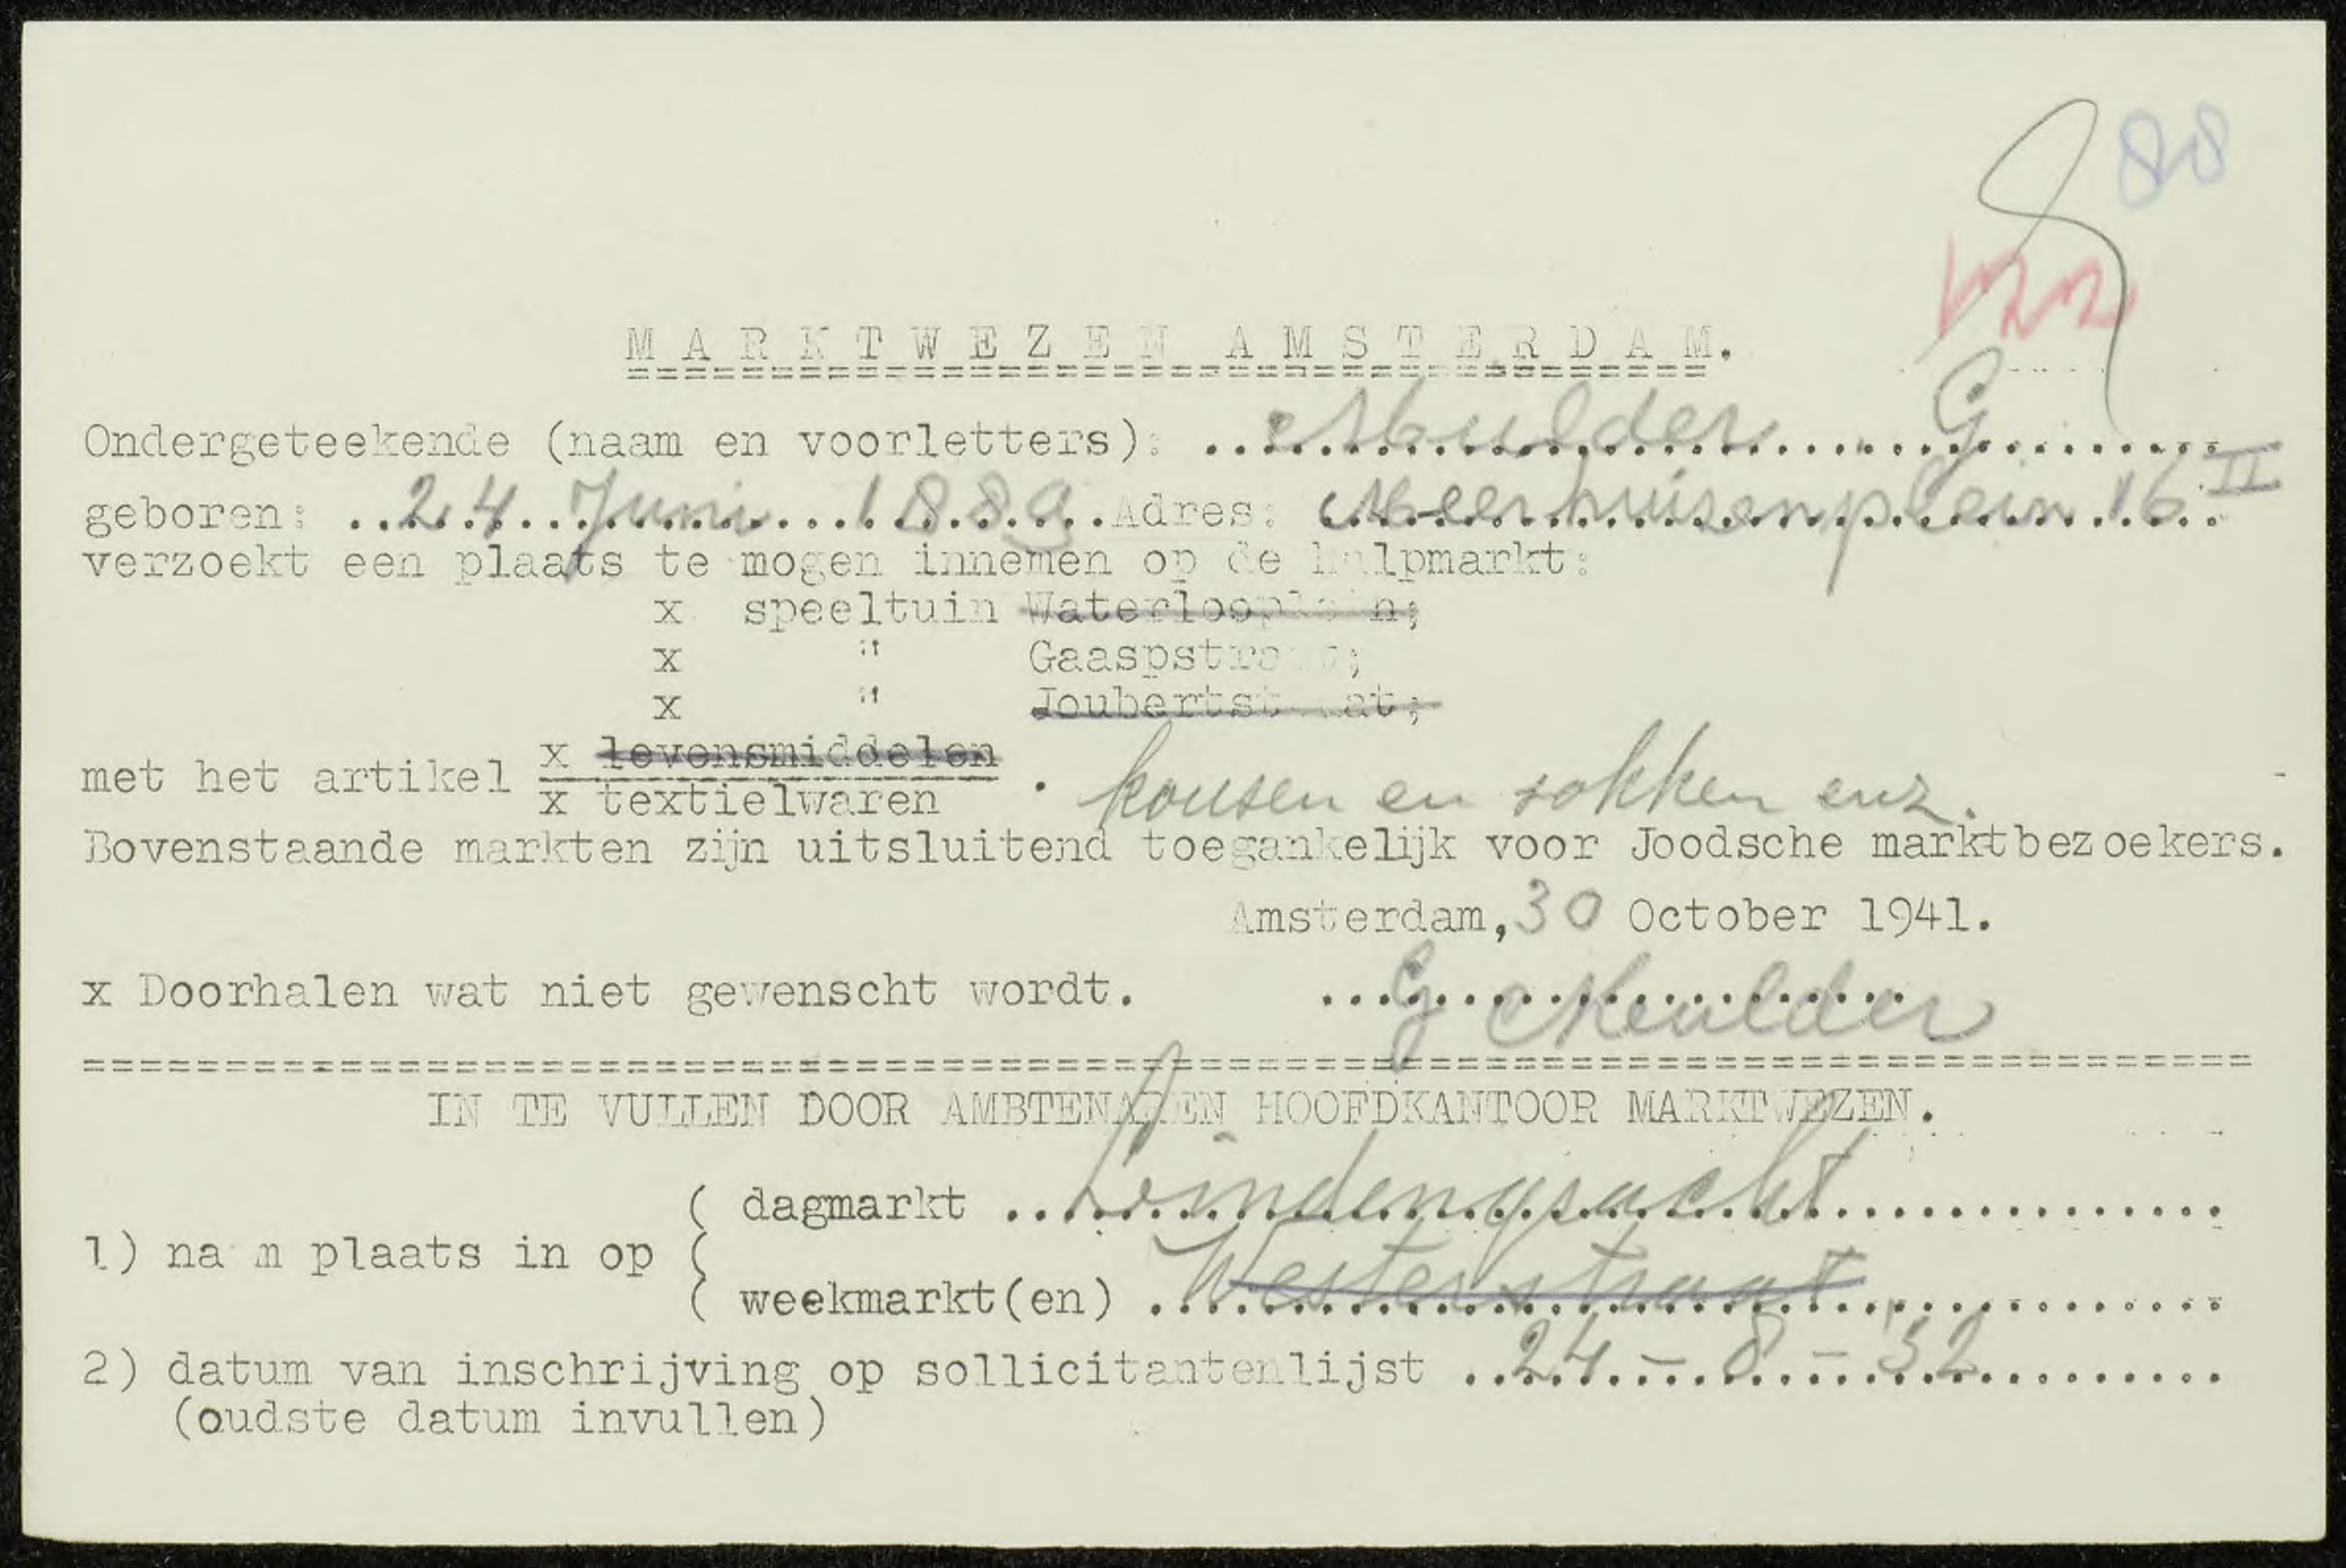 88
M A R K T W E Z E N  A M S T E R D A M.
Ondergeteekende (naam en voorletters): Mulder G
geboren: 24 Juni 1889 Adres: Meerhuisenplein 16 II
verzoekt een plaats te mogen innemen op de hulpmarkt:
x speeltuin Waterlooplein;
x " Gaaspstraat;
x " Joubertstraat;
x levensmiddelen
met het artikel . kousen en sokken enz.
x textielwaren
Bovenstaande markten zijn uitsluitend toegankelijk voor Joodsche marktbezoekers.
Amsterdam, 30 October 1941.
x Doorhalen wat niet gewenscht wordt. G Mulder
IN TE VULLEN DOOR AMBTENAREN HOOFDKANTOOR MARKTWEZEN.
( dagmarkt Lindengracht
1) nam plaats in op (
( weekmarkt(en) Westerstraat
2) datum van inschrijving op sollicitantenlijst 24 - 8 - '32
(oudste datum invullen)